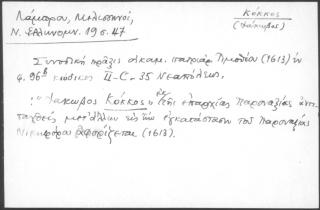 Λάμπρου, Μελισηνοί,
Ν. Ἑλληνομν. 19 σ. 47
Κόκκος
(Ἰάκωβος)
Συνοδική πράξις οἰκουμ. πατριάρ Τιμοθέου (1613) ἐν
φ. 96β κώδικος II-C-35 Νεαπόλεως.
: "Ἰάκωβος Κόκκος ὁ ἐκ τῆς ἐπαρχίας Παροναξίας ἀντι
ταχθείς μετ' ἄλλων εἰς τήν ἐγκατάστασιν τοῦ Παροναξίας
Νικηφόρου ἀφορίζεται (1613).